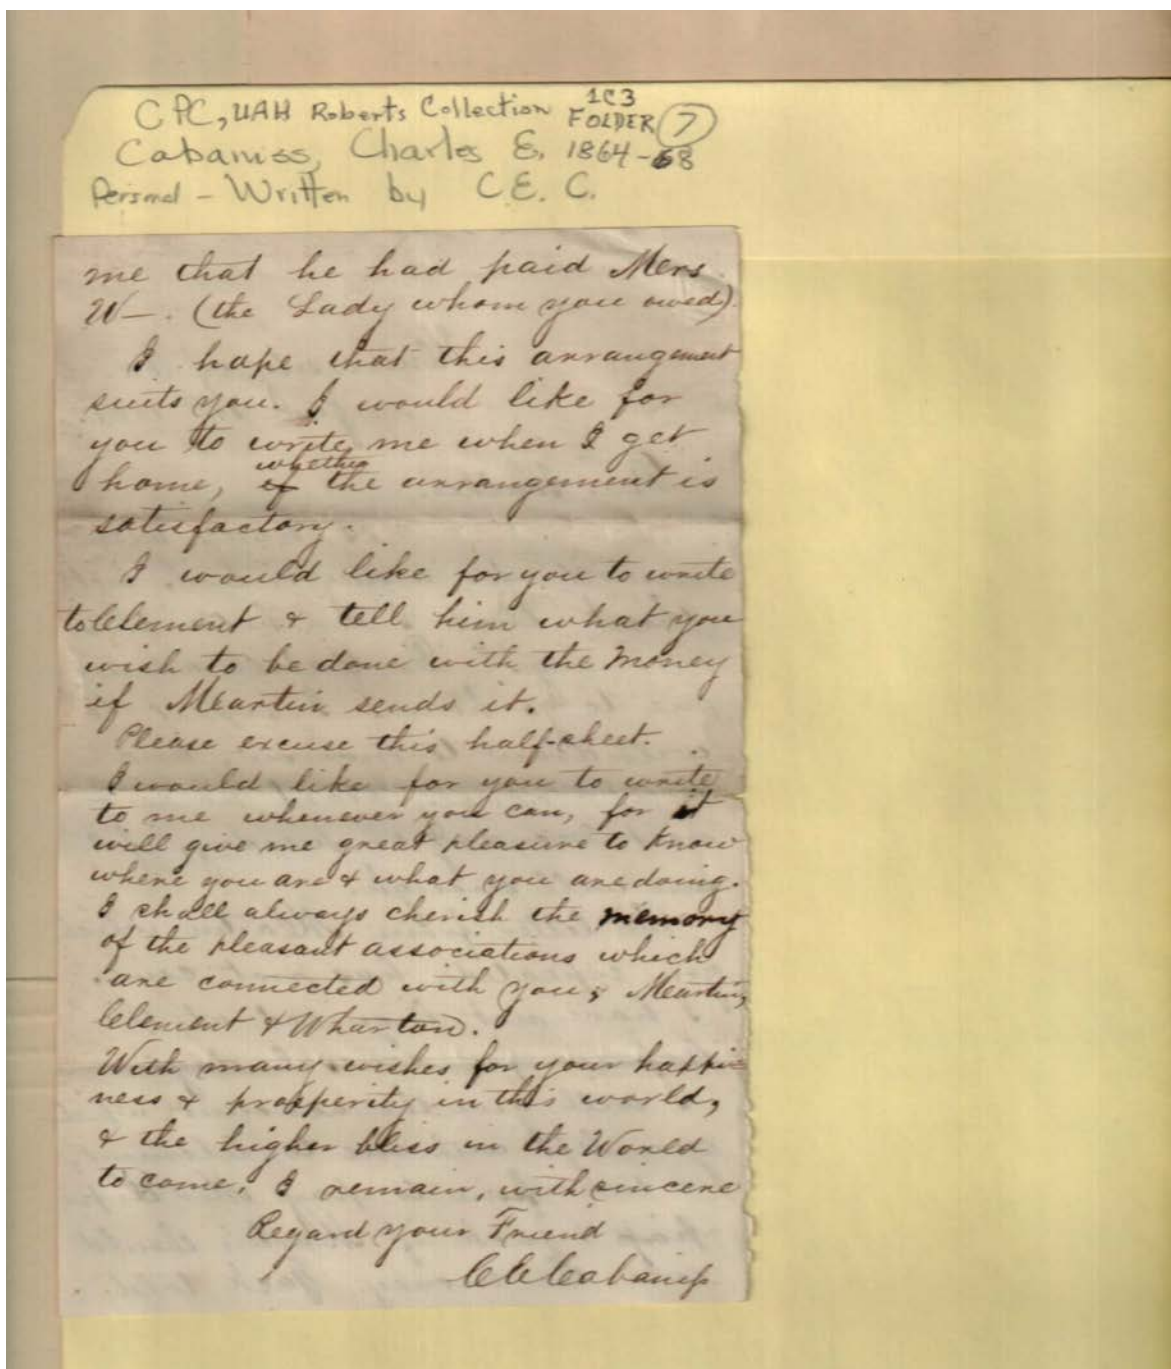 CPC, UAH Roberts Collection 1C3 FOLDER 7
Cabaniss, Charles E. 1864-68
Personal - Written by C.E.C.
me that he had paid Mrs
W—. (the Lady whom you owed).
I hope that this arrangement
suits you. I would like for
you to write me when I get
home, if whether the arrangement is
satisfactory.
I would like for you to write
to Clement & tell him what you
wish to be done with the money
if Martin sends it.
Please excuse this half-sheet.
I would like for you to write
to me whenever you can, for it
will give me great pleasure to know
where you are & what you are doing.
I shall always cherish the memory
of the pleasant associations which
are connected with you, Martin,
Clement & Wharton.
With many wishes for your happi-
ness & prosperity in this world,
& the higher bliss in the World
to come, I remain, with sincere
Regard your Friend
C E Cabaniss